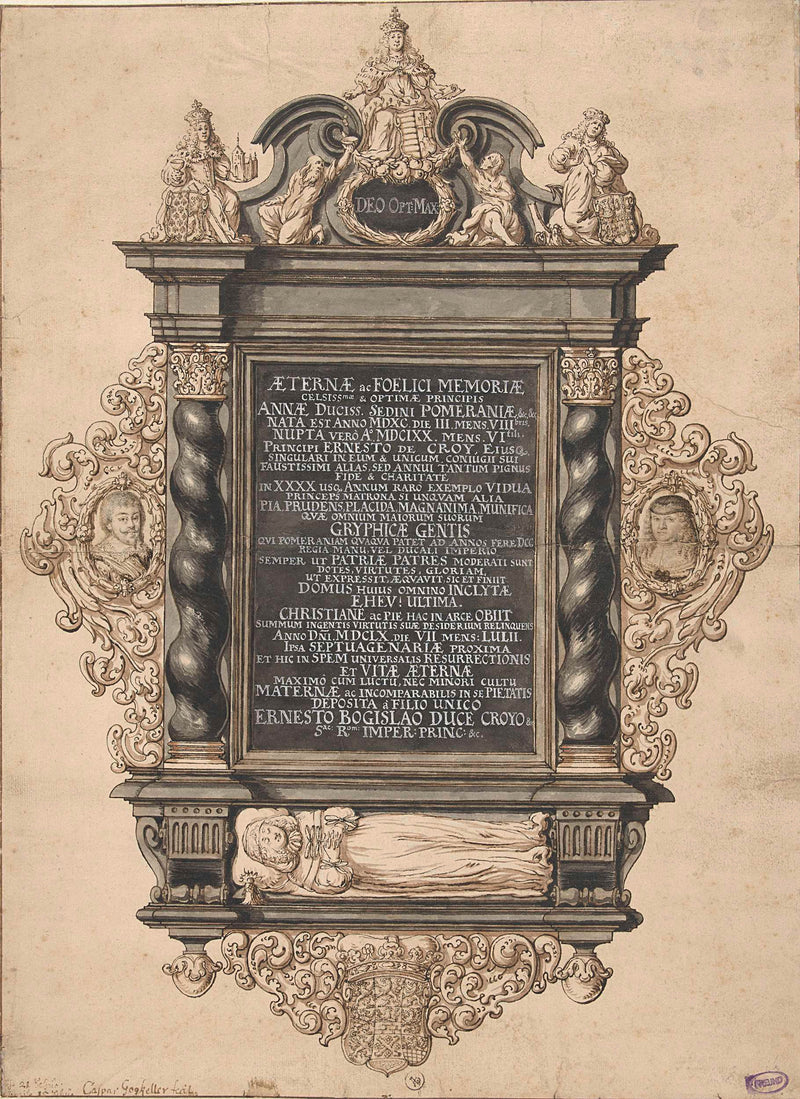 DEO OPT: MAX
ÆTERNÆ ac FOELICI MEMORIÆ
CELSISSmæ & OPTIMÆ PRINCIPIS
ANNÆ DUCISS. SEDINI POMERANIÆ, &c, &c.
NATA EST ANNO MDXC. DIE III. MENS. VIIIbris.
NUPTA VERÒ Aº MDCIXX. MENS. VItili.
PRINCIPI ERNESTO DE CROY, EIUSQ.
SINGULARI IN EUM & UNICUM CONIUGII SUI
FAUSTISSIMI ALIAS, SED ANNUI TANTUM PIGNUS
FIDE & CHARITATE
IN XXXX USQ. ANNUM RARO EXEMPLO VIDUA
PRINCEPS MATRONA SI UNQUAM ALIA
PIA, PRUDENS, PLACIDA, MAGNANIMA, MUNIFICA
QUÆ OMNIUM MAIORUM SUORUM
GRYPHICÆ GENTIS
QUI POMERANIAM QUAQUA PATET AD ANNOS FERE DCC
REGIA MANU, VEL DUCALI IMPERIO
SEMPER UT PATRIÆ PATRES MODERATI SUNT
DOTES, VIRTUTES, GLORIAM,
UT EXPRESSIT, ÆQUAVIT, SIC ET FINIIT
DOMUS HUIUS OMNINO INCLYTÆ
EHEV! ULTIMA.
CHRISTIANE ac PIE HAC IN ARCE OBIIT
SUMMUM INGENTIS VIRTUTIS SUÆ DESIDERIUM RELINQUENS
ANNO DNI. MDCLX. DIE VII MENS: LULII.
IPSA SEPTUAGENARIÆ PROXIMA
ET HIC IN SPEM UNIVERSALIS RESURRECTIONIS
ET VITÆ ÆTERNÆ
MAXIMO CUM LUCTU, NEC MINORI CULTU
MATERNÆ ac INCOMPARABILIS IN SE PIETATIS
DEPOSITA à FILIO UNICO
ERNESTO BOGISLAO DUCE CROYO &
Sac: Rom: IMPER: PRINC: &c.
Caspar Gogkeller fecit